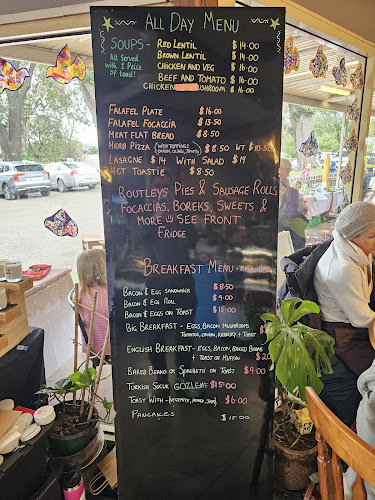 ALL DAY MENU
SOUPS - RED LENTIL $14.00
ALL SERVED WITH 1 PEICE OF TOAST! BROWN LENTIL $14.00
CHICKEN AND VEG $16.00
BEEF AND TOMATO $16.00
CHICKEN MUSHROOM $16.00
FALAFEL PLATE $16.00
FALAFEL FOCACCIA $13.50
MEAT FLAT BREAD $8.50
HERB PIZZA (WITH TOPPINGS) (ONION, OLIVES, TOMATO) $8.50 WT $10.50
LASAGNE $14 WITH SALAD $19
HOT TOASTIE $8.50
ROUTLEYS PIES & SAUSAGE ROLLS
FOCACCIAS, BOREKS, SWEETS &
MORE SEE FRONT
FRIDGE
BREAKFAST MENU
BACON & EGG SANDWICH $8.50
BACON & EGG ROLL $9.00
BACON & EGGS ON TOAST $15.00
BIG BREAKFAST - EGGS, BACON, MUSHROOMS
TOMATOES, ONION, KRANSKY & TOAST
ENGLISH BREAKFAST - EGGS, BACON, BAKED BEANS
& TOAST OR MUFFIN $20
BAKED BEANS OR SPAGHETTI ON TOAST $9.00
TURKISH SUCUK GÖZLEME $15.00
TOAST WITH - (VEGEMITE, HONEY, JAM) $6.00
PANCAKES $15.00